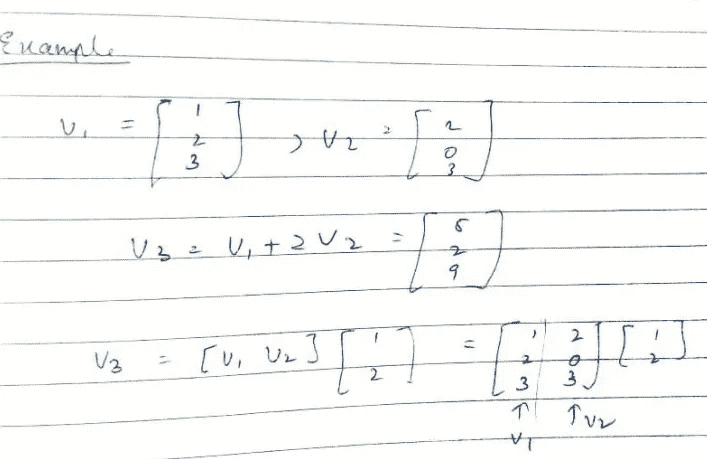 Example
v₁ = [1 2 3] , v₂ = [2 0 3]
v₃ = v₁ + 2 v₂ = [5 2 9]
v₃ = [v₁ v₂] [1 2] = [1 2 2 0 3 3] [1 2]
↑ ↑ v₂
v₁